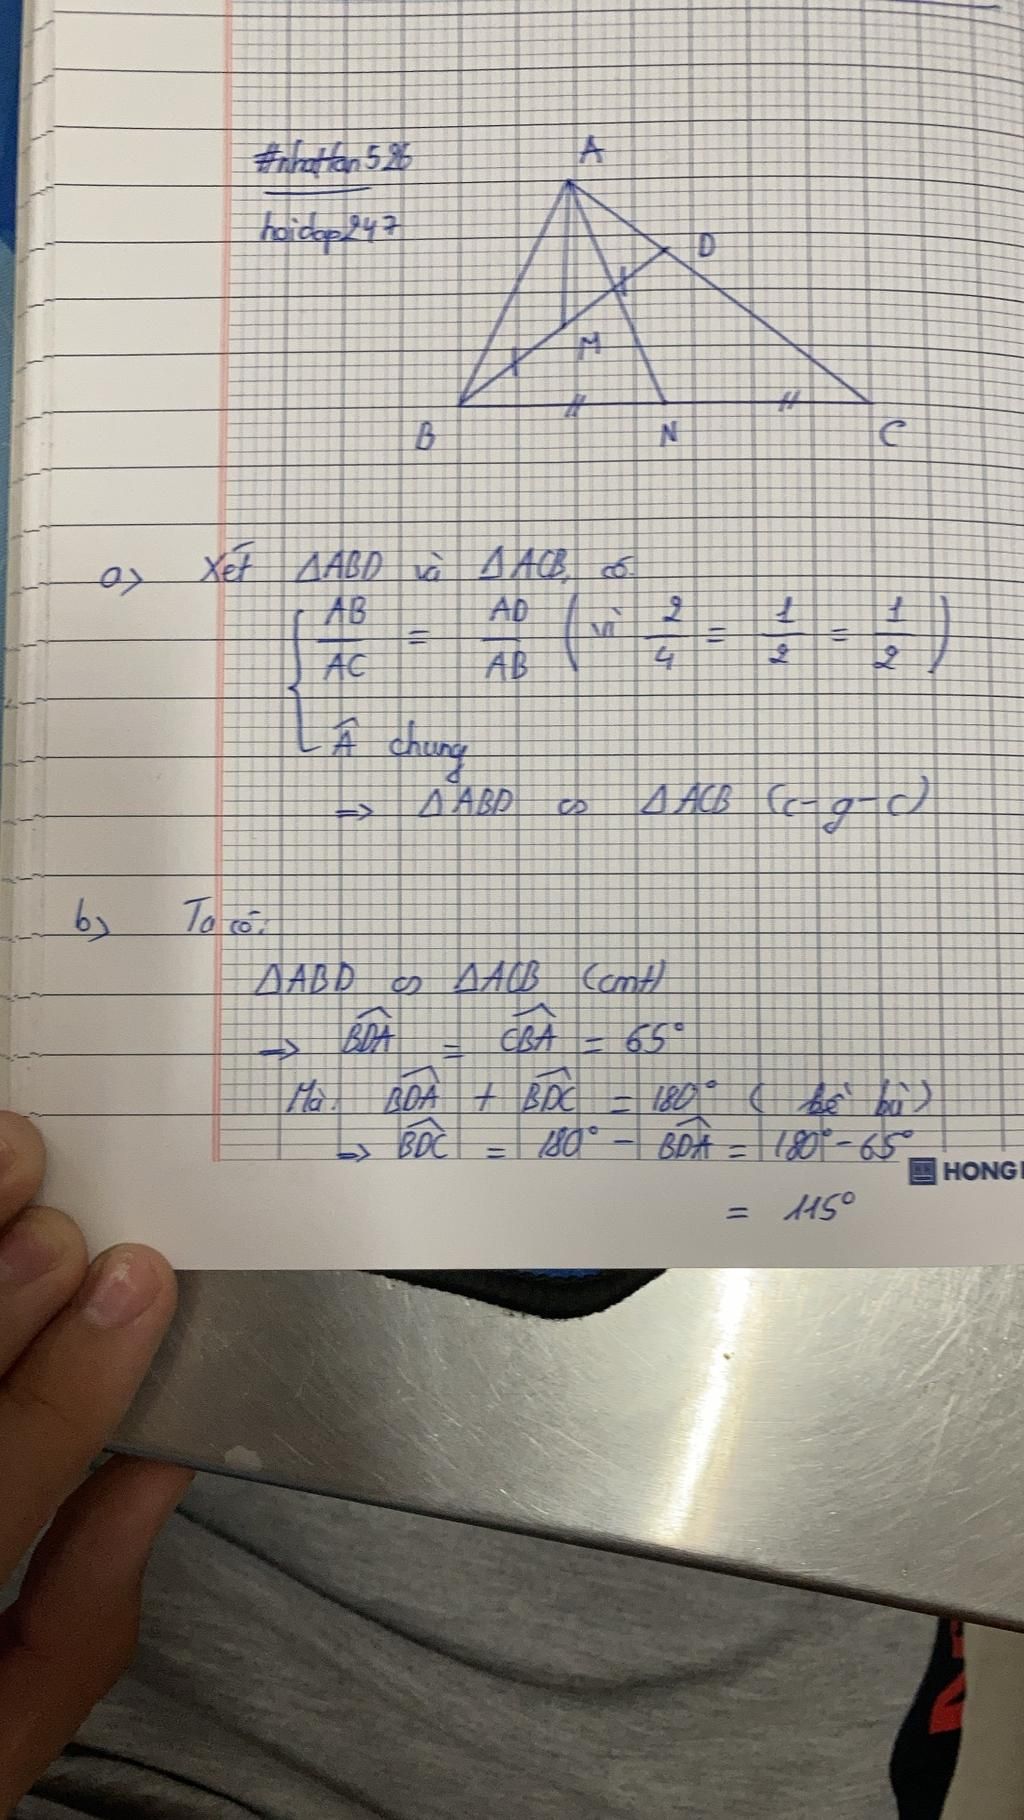 #nhattan526
hoidap247
A
D
M
B
N
C
a> Xét ΔABD và ΔACB, có
AB/AC = AD/AB (vì 2/4 = 1/2 = 1/2)
Â chung
=> ΔABD ∽ ΔACB (c-g-c)
b> Ta có:
ΔABD ∽ ΔACB (cmt)
=> BDA^ = CBA^ = 65°
Mà: BDA^ + BDC^ = 180° (kề bù)
=> BDC^ = 180° - BDA^ = 180° - 65°
HONG
= 115°